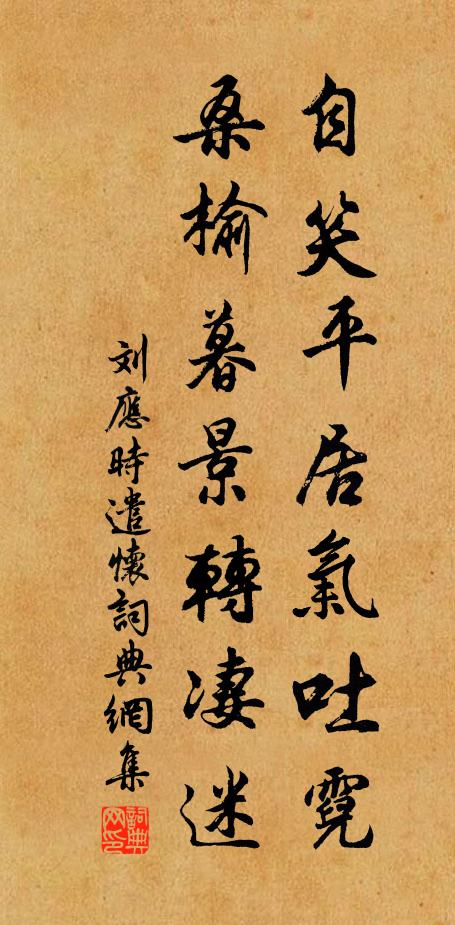 自笑平居氣吐霓
桑榆暮景轉凄迷
刘應時遣懷詞典網集
詞典网印